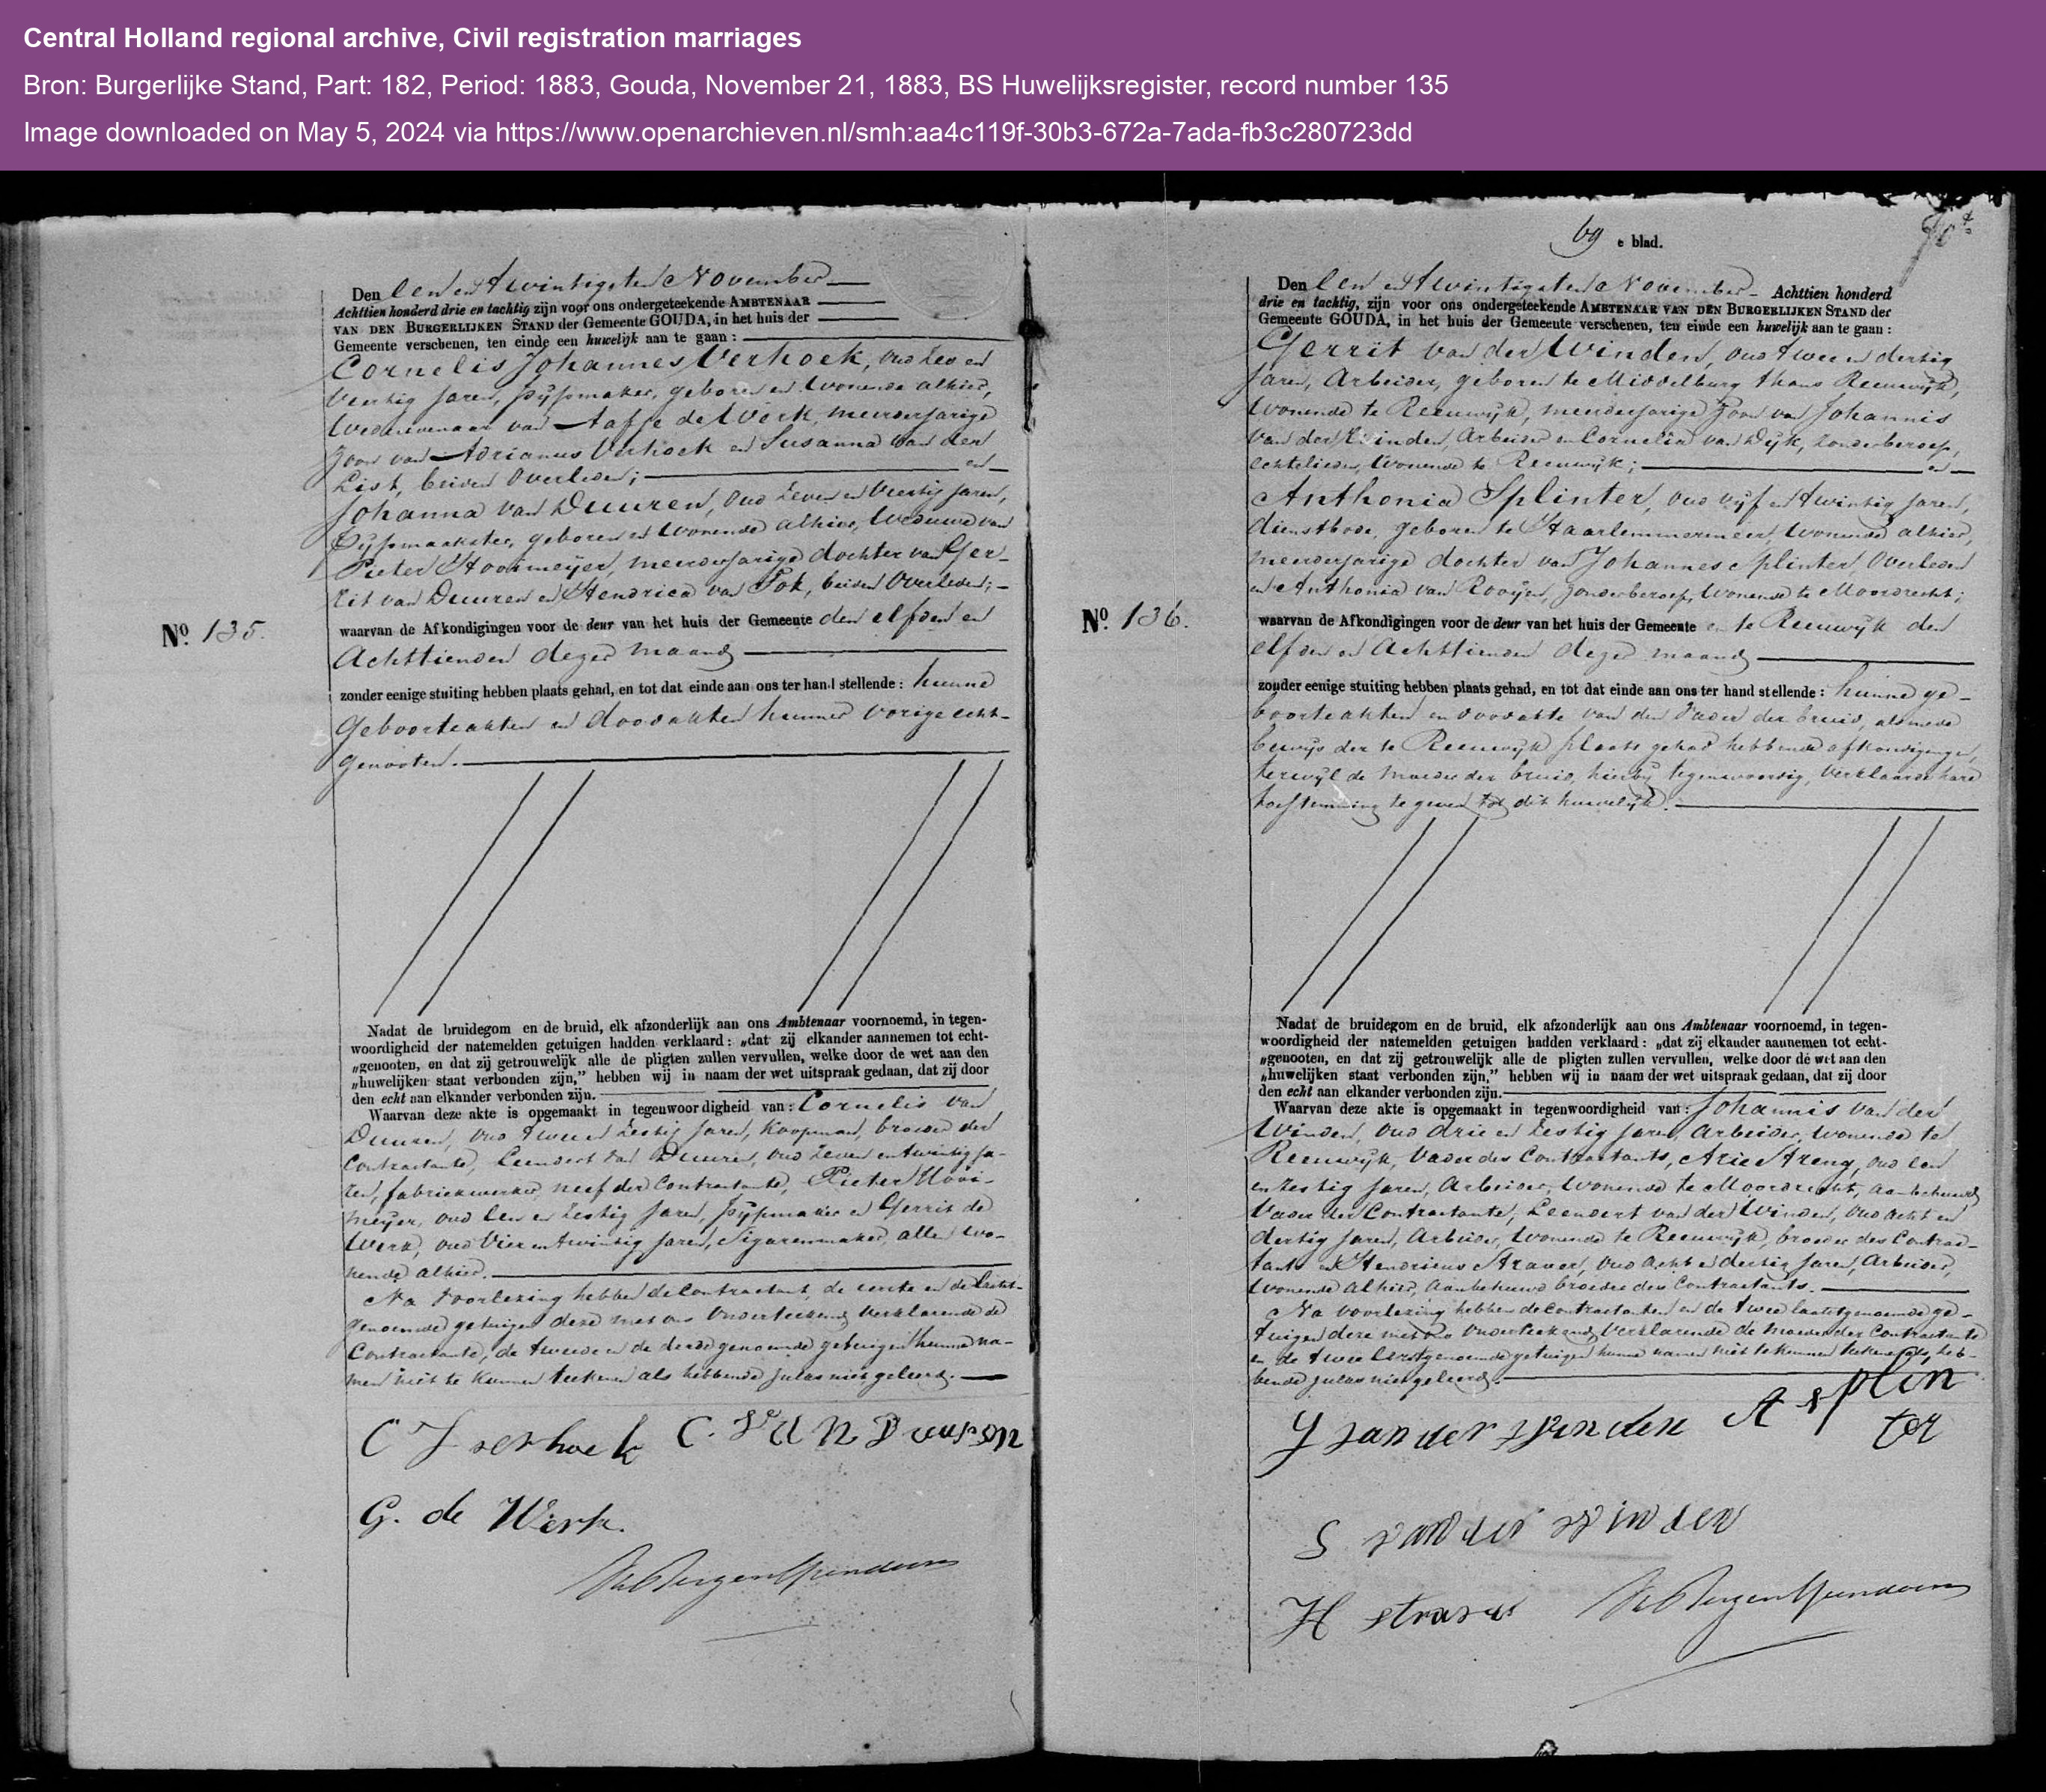 Central Holland regional archive, Civil registration marriages
Bron: Burgerlijke Stand, Part: 182, Period: 1883, Gouda, November 21, 1883, BS Huwelijksregister, record number 135
Image downloaded on May 5, 2024 via https://www.openarchieven.nl/smh:aa4c119f-30b3-672a-7ada-fb3c280723dd
Den een en twintigsten November
Achttien honderd drie en tachtig zijn voor ons ondergeteekende AMBTENAAR
VAN DEN BURGERLIJKEN STAND der Gemeente GOUDA, in het huis der
Gemeente verschenen, ten einde een huwelijk aan te gaan:
Cornelis Johannes Verhoek, oud zes en
veertig jaren, pijpmaker, geboren en wonende alhier,
Weduwenaar van Aafje de Werk, meerderjarige
zoon van Adrianus Verhoek en Susanna van der
List, beiden overleden; en
Johanna van Duuren, oud zeven en veertig jaren,
Pijpmaakster, geboren en wonende alhier, Weduwe van
Pieter Hooimeijer, meerderjarige dochter van Ger-
rit van Duuren en Hendrica van Tok, beiden overleden;
No. 135.
waarvan de Afkondigingen voor de deur van het huis der Gemeente den elfden en
Achttienden dezer maand
zonder eenige stuiting hebben plaats gehad, en tot dat einde aan ons ter hand stellende: hunne
geboorteakten en doodakten hunner vorige echt-
genooten.
Nadat de bruidegom en de bruid, elk afzonderlijk aan ons Ambtenaar voornoemd, in tegen-
woordigheid der natemelden getuigen hadden verklaard: „dat zij elkander aannemen tot echt-
„genooten, en dat zij getrouwelijk alle de pligten zullen vervullen, welke door de wet aan den
„huwelijken staat verbonden zijn,” hebben wij in naam der wet uitspraak gedaan, dat zij door
den echt aan elkander verbonden zijn.
Waarvan deze akte is opgemaakt in tegenwoordigheid van: Cornelis van
Duuren, oud twee en zestig jaren, koopman, broeder der
Contractante, Leendert van Duuren, oud zeven en twintig ja-
ren, fabriekwerker, neef der Contractante, Pieter Hooi-
meijer, oud een en zestig jaren, pijpmaker en Gerrit de
Werk, oud vier en twintig jaren, Sigarenmaker, allen wo-
nende alhier.
Na voorlezing hebben de Contractant, de eerste en de laatst-
genoemde getuigen deze met ons onderteekend, verklarende de
Contractante, de tweede en de derde genoemde getuigen hunne na-
men niet te kunnen teekenen als hebbende zulks niet geleerd.
C J verhoek C. van Duuren
G. de Werk.
69 e blad.
Den een en twintigsten November Achttien honderd
drie en tachtig, zijn voor ons ondergeteekende AMBTENAAR VAN DEN BURGERLIJKEN STAND der
Gemeente GOUDA, in het huis der Gemeente verschenen, ten einde een huwelijk aan te gaan:
Gerrit van der Winden, oud twee en dertig
jaren, Arbeider, geboren te Middelburg thans Reeuwijk,
wonende te Reeuwijk, meerderjarige zoon van Johannis
van der Winden, Arbeider en Cornelia van Dijk, zonder beroep,
echtelieden, wonende te Reeuwijk; en
Anthonia Splinter, oud vijf en twintig jaren,
dienstbode, geboren te Haarlemmermeer, wonende alhier,
meerderjarige dochter van Johannes Splinter, overleden
en Anthonia van Rooijen, zonder beroep, wonende te Moordrecht;
No. 136.
waarvan de Afkondigingen voor de deur van het huis der Gemeente en te Reeuwijk den
elfden en Achttienden dezer maand
zonder eenige stuiting hebben plaats gehad, en tot dat einde aan ons ter hand stellende: hunne ge-
boorteakten en doodakte van den Vader der bruid, alsmede
bewijs der te Reeuwijk plaats gehad hebbende afkondigingen,
terwijl de moeder der bruid, hierbij tegenwoordig, verklaarde hare
toestemming te geven tot dit huwelijk.
Nadat de bruidegom en de bruid, elk afzonderlijk aan ons Ambtenaar voornoemd, in tegen-
woordigheid der natemelden getuigen hadden verklaard: „dat zij elkander aannemen tot echt-
„genooten, en dat zij getrouwelijk alle de pligten zullen vervullen, welke door de wet aan den
„huwelijken staat verbonden zijn,” hebben wij in naam der wet uitspraak gedaan, dat zij door
den echt aan elkander verbonden zijn.
Waarvan deze akte is opgemaakt in tegenwoordigheid van: Johannis van der
Winden, oud drie en zestig jaren, Arbeider, wonende te
Reeuwijk, Vader des Contractants, Arie Streng, oud een
en zestig jaren, Arbeider, wonende te Moordrecht, aanbehuwd
Vader der Contractante, Leendert van der Winden, oud acht en
dertig jaren, Arbeider, wonende te Reeuwijk, broeder des Contrac-
tants en Hendricus Straver, oud acht en dertig jaren, Arbeider,
wonende alhier, aanbehuwd broeder des Contractants.
Na voorlezing hebben de Contractanten en de twee laatstgenoemde ge-
tuigen deze met ons onderteekend, verklarende de moeder der Contractante
en de twee eerstgenoemde getuigen hunne namen niet te kunnen teekenen als heb-
bende zulks niet geleerd.
G van der winden A splin
ter
L van der winden
H straver